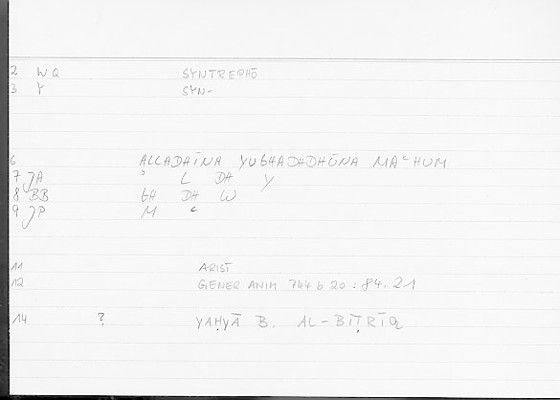 2 WQ SYNTREPHŌ
3 Y SYN-
6 ALLADHĪNA YUGHADHDHŪNA MAʿHUM
7 JA ʾ L DH Y
8 BB GH DH W
9 JP M ʿ
11 ARIST
12 GENER ANIM 744 b 20 : 84.21
14 ? YAḤYĀ B. AL-BIṬRĪQ